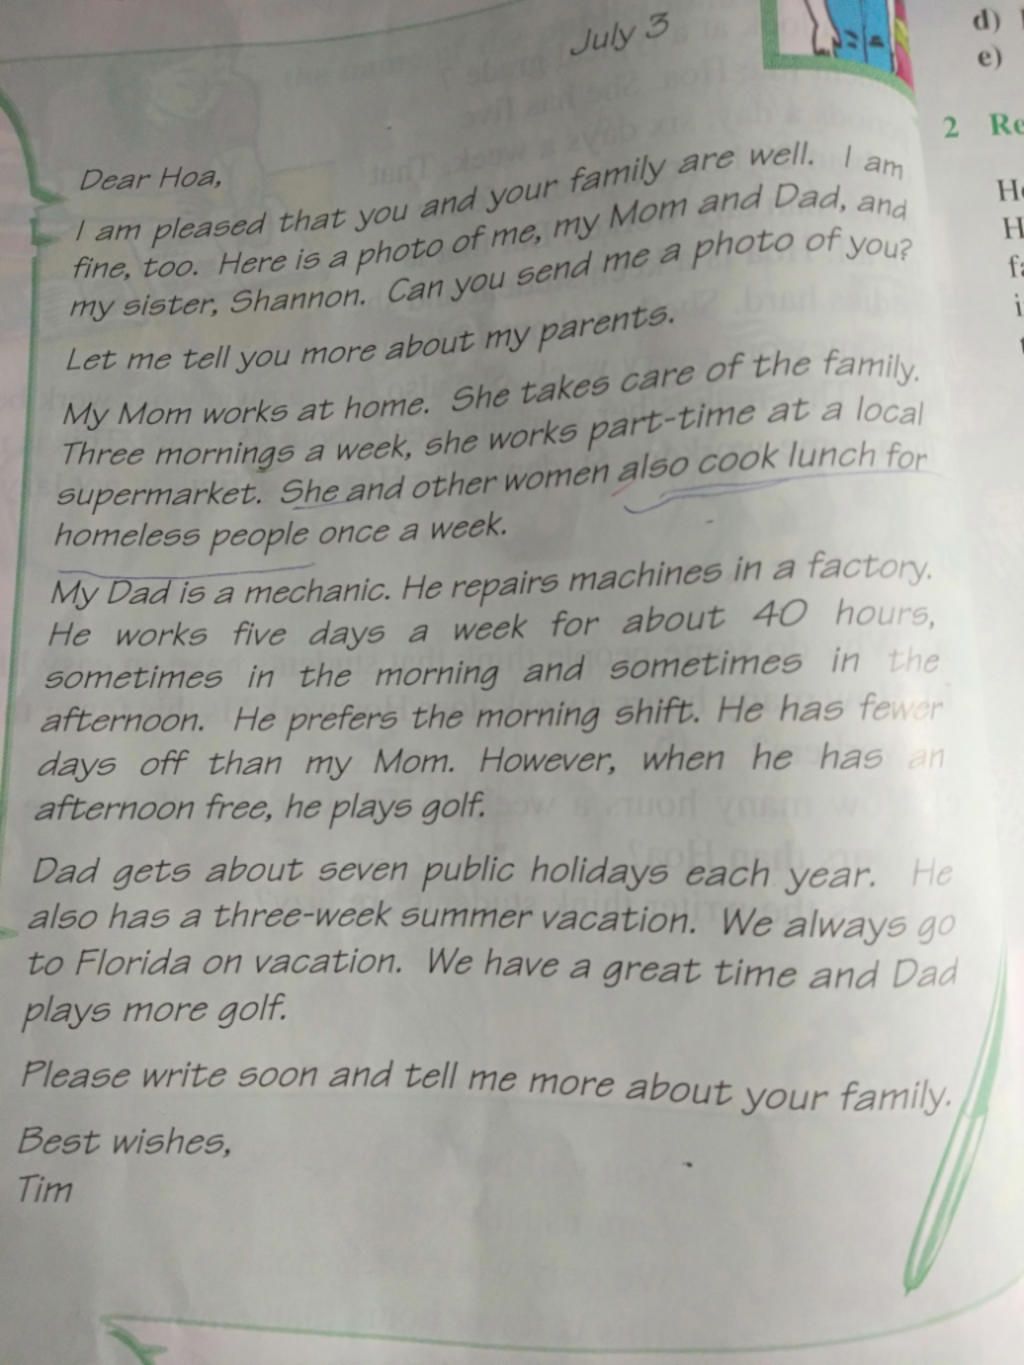 July 3
d)
e)
2 Re
Dear Hoa,
I am pleased that you and your family are well. I am
fine, too. Here is a photo of me, my Mom and Dad, and
my sister, Shannon. Can you send me a photo of you?
Let me tell you more about my parents.
My Mom works at home. She takes care of the family.
Three mornings a week, she works part-time at a local
supermarket. She and other women also cook lunch for
homeless people once a week.
My Dad is a mechanic. He repairs machines in a factory.
He works five days a week for about 40 hours,
sometimes in the morning and sometimes in the
afternoon. He prefers the morning shift. He has fewer
days off than my Mom. However, when he has an
afternoon free, he plays golf.
Dad gets about seven public holidays each year. He
also has a three-week summer vacation. We always go
to Florida on vacation. We have a great time and Dad
plays more golf.
Please write soon and tell me more about your family.
Best wishes,
Tim